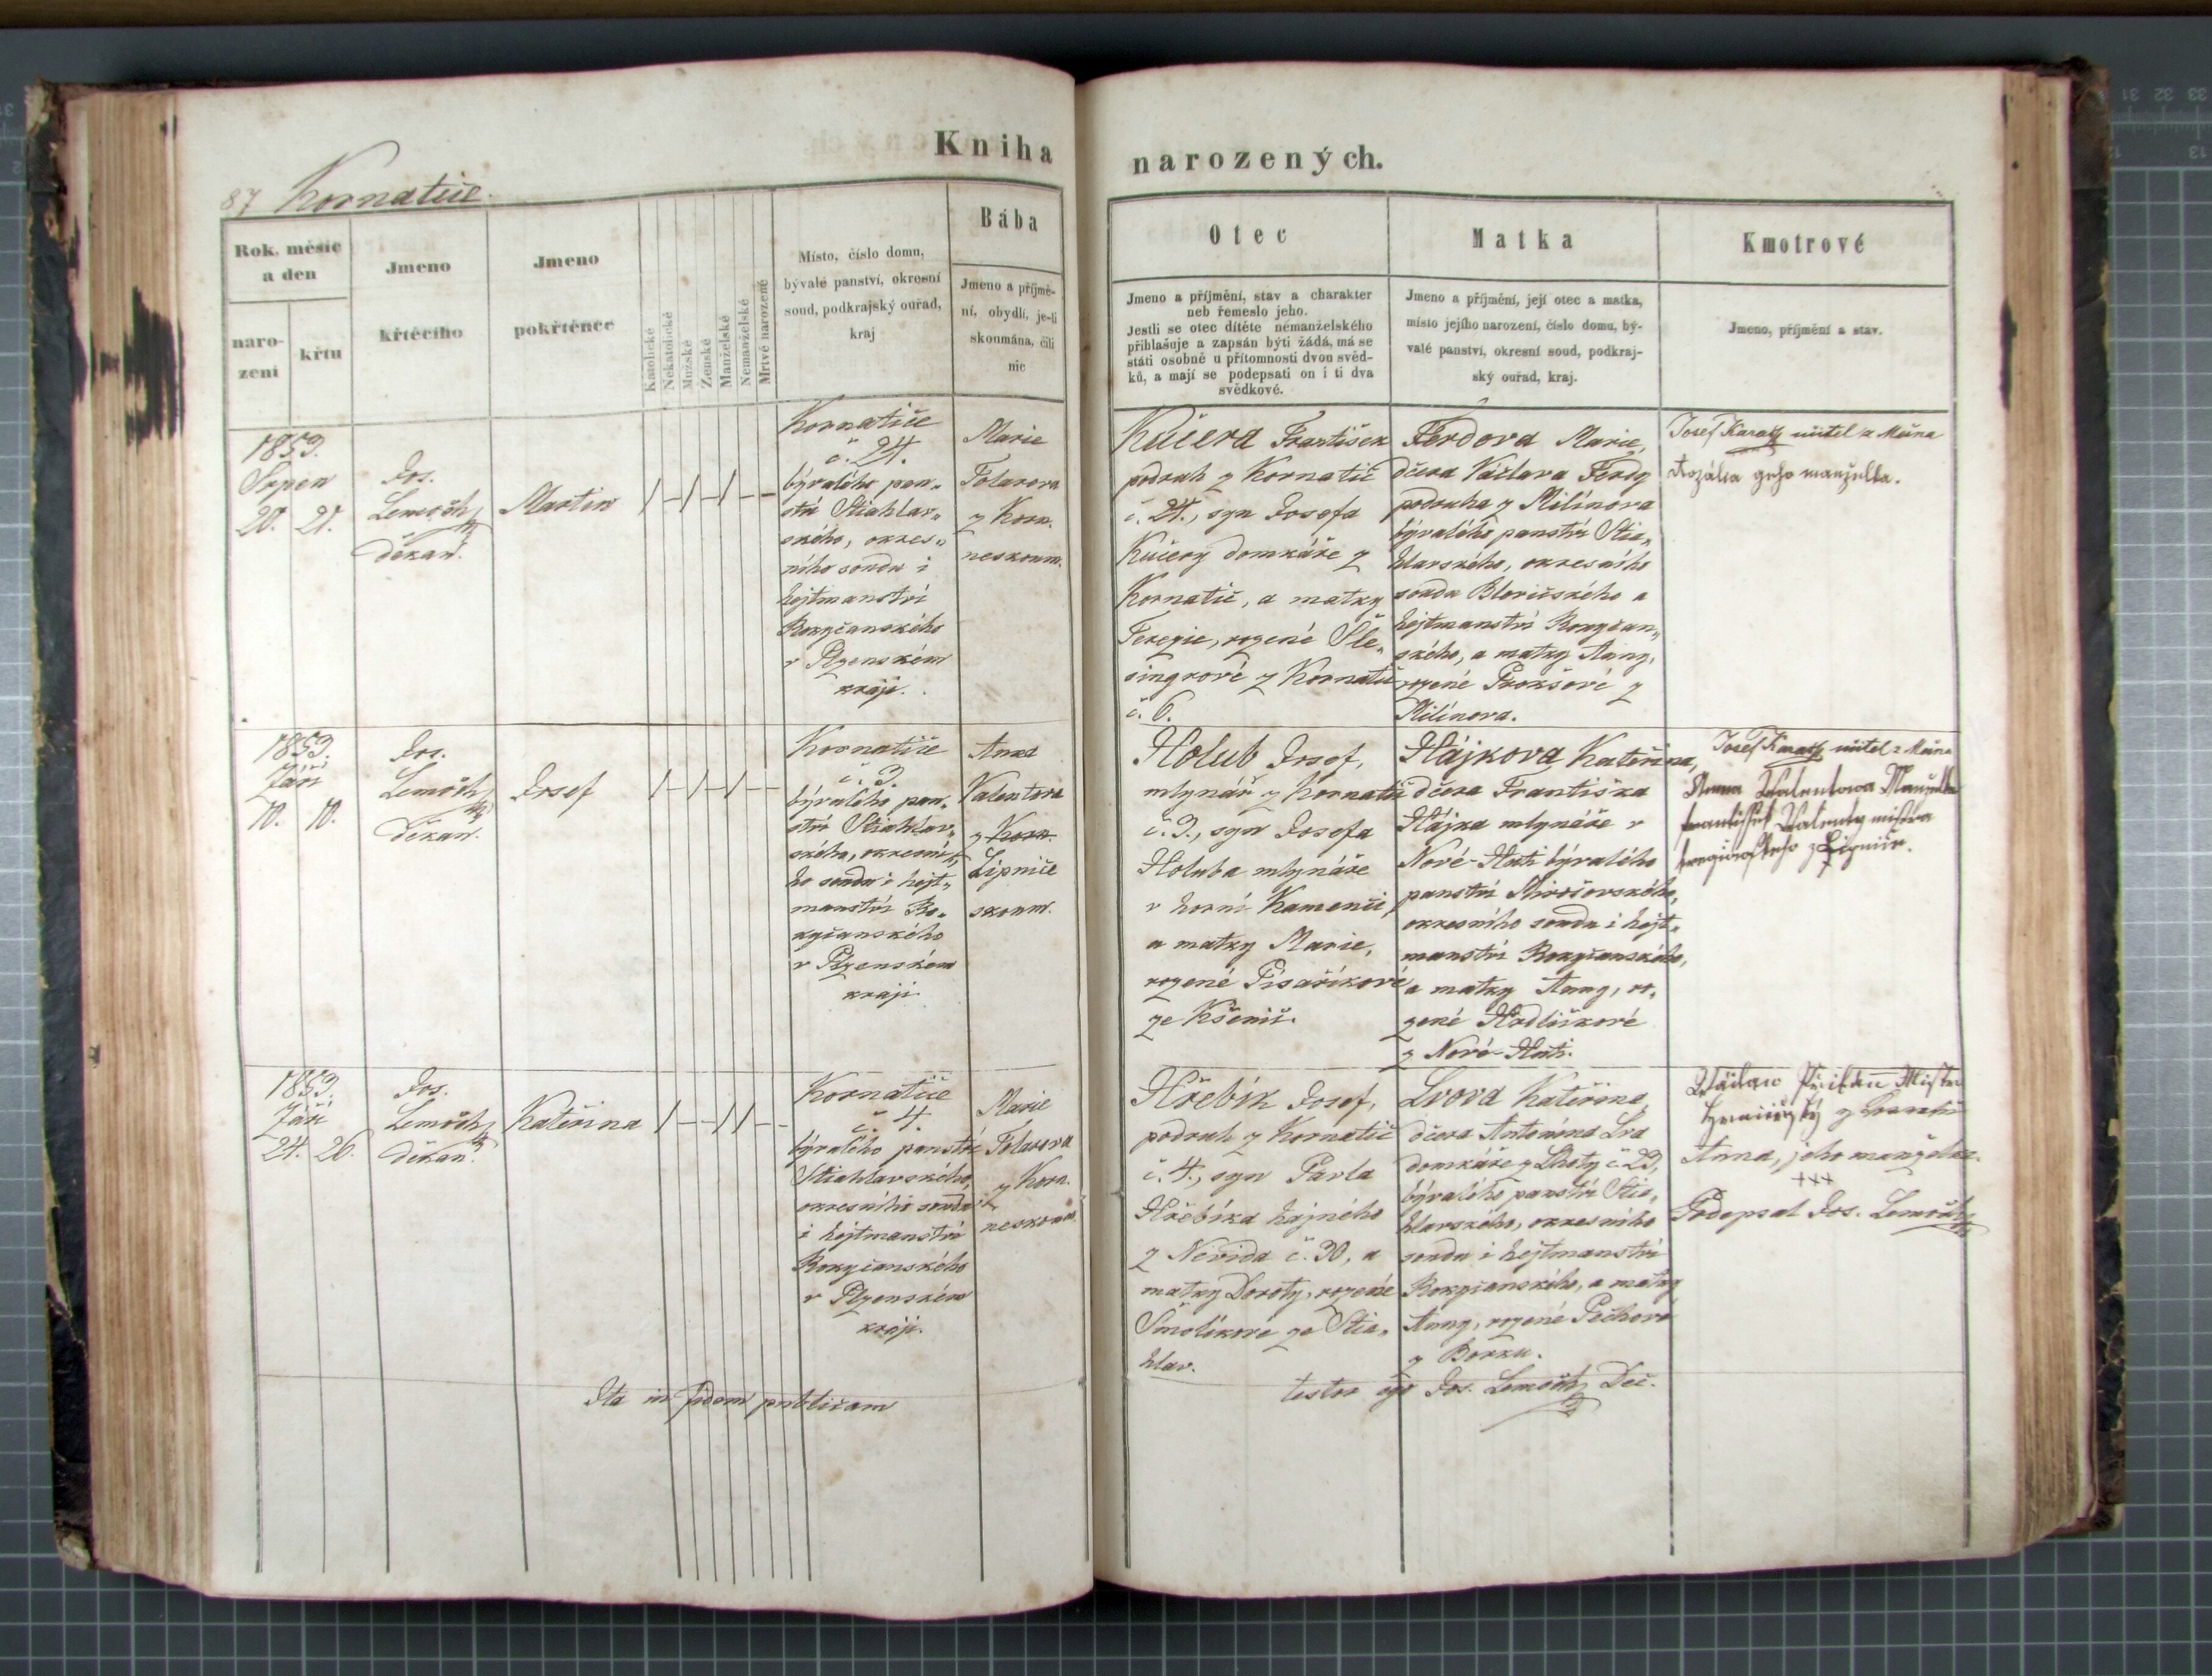 Kniha narozených.
87 Kornatice.
Rok, měsíc a den
naro-
zení
křtu
Jmeno
křtěcího
Jmeno
pokřtěnce
Katolické
Nekatolické
Mužské
Ženské
Manželské
Nemanželské
Mrtvě narozené
Místo, číslo domu,
bývalé panství, okresní
soud, podkrajský ouřad,
kraj
Bába
Jmeno a příjmě-
ní, obydlí, je-li
skoumána, čili
nic
Otec
Jmeno a příjmění, stav a charakter
neb řemeslo jeho.
Jestli se otec dítěte nemanželského
přihlašuje a zapsán býti žádá, má se
státi osobně u přítomnosti dvou svěd-
ků, a mají se podepsati on i ti dva
svědkové.
Matka
Jmeno a příjmění, její otec a matka,
místo jejího narození, číslo domu, bý-
valé panství, okresní soud, podkraj-
ský ouřad, kraj.
Kmotrové
Jmeno, příjmění a stav.
1853.
Srpen
20. 21.
Jos.
Lemoch
děkan.
Martin
Kornatice
č. 24.
bývalého pan„
ství Štiahlav„
ského, okres„
ního soudu i
hejtmanství
Rokyčanského
v Plzenském
kraji.
Marie
Tolarova
z Korn.
neskoum.
Kučera František
podruh z Kornatic
č. 24., syn Josefa
Kučery domkáře z
Kornatic, a matky
Terezie, rozené Šle„
singrové z Kornatic
č. 6.
Ferdova Marie,
dčera Václava Ferdy
podruha z Milínova
bývalého panství Štia„
hlavského, okresního
soudu Blovického a
hejtmanství Rokyčan„
ského, a matky Anny,
rozené Prokšové z
Milínova.
Josef učitel z
Rozálie geho manželka.
1853.
Září
10. 10.
Jos.
Lemoch
děkan.
Josef
Kornatice
č. 3.
bývalého pan„
ství Štiahlav„
ského, okresní„
ho soudu i hejt„
manství Ro„
kyčanského
v Plzenském
kraji.
Anna
Valentova
z Korn.
Lipnice
skoum.
Holub Josef,
mlynář z Kornatic
č. 3., syn Josefa
Holuba mlynáře
v horní Kamenici,
a matky Marie,
rozené Písaříkové
ze Kšenic.
Hájkova Kateřina,
dčera Františka
Hájka mlynáře v
Nové-Huti bývalého
panství Mirošovského,
okresního soudu i hejt„
manství Rokyčanského,
a matky Anny, ro„
zené Hrdličkové
z Nové-Huti.
Josef učitel z
Anna Valentowa Manželka
Valenty mistra
z Lipnice.
1853.
Září
24. 26.
Jos.
Lemoch
děkan.
Kateřina
Kornatice
č. 4.
bývalého panství
Štiahlavského,
okresního soudu
i hejtmanství
Rokyčanského
v Plzenském
kraji.
Marie
Tolarova
z Korn.
neskoum.
Hřebík Josef,
podruh z Kornatic
č. 4., syn Pavla
Hřebíka hajného
z Nevida č. 30, a
matky Doroty, rozené
Smolíkové ze Štia„
hlav.
Lvova Kateřina,
dčera Antonína Lva
domkáře z Lhoty č 23,
bývalého panství Štia„
hlavského, okresního
soudu i hejtmanství
Rokyčanského, a matky
Anny, rozené Pechové
z Borku.
Václav Mistr
z
Anna, jeho manželka.
+++
Podepsal Jos. Lemoch
Ita in fidem publicam
testor ego Jos. Lemoch Dec.